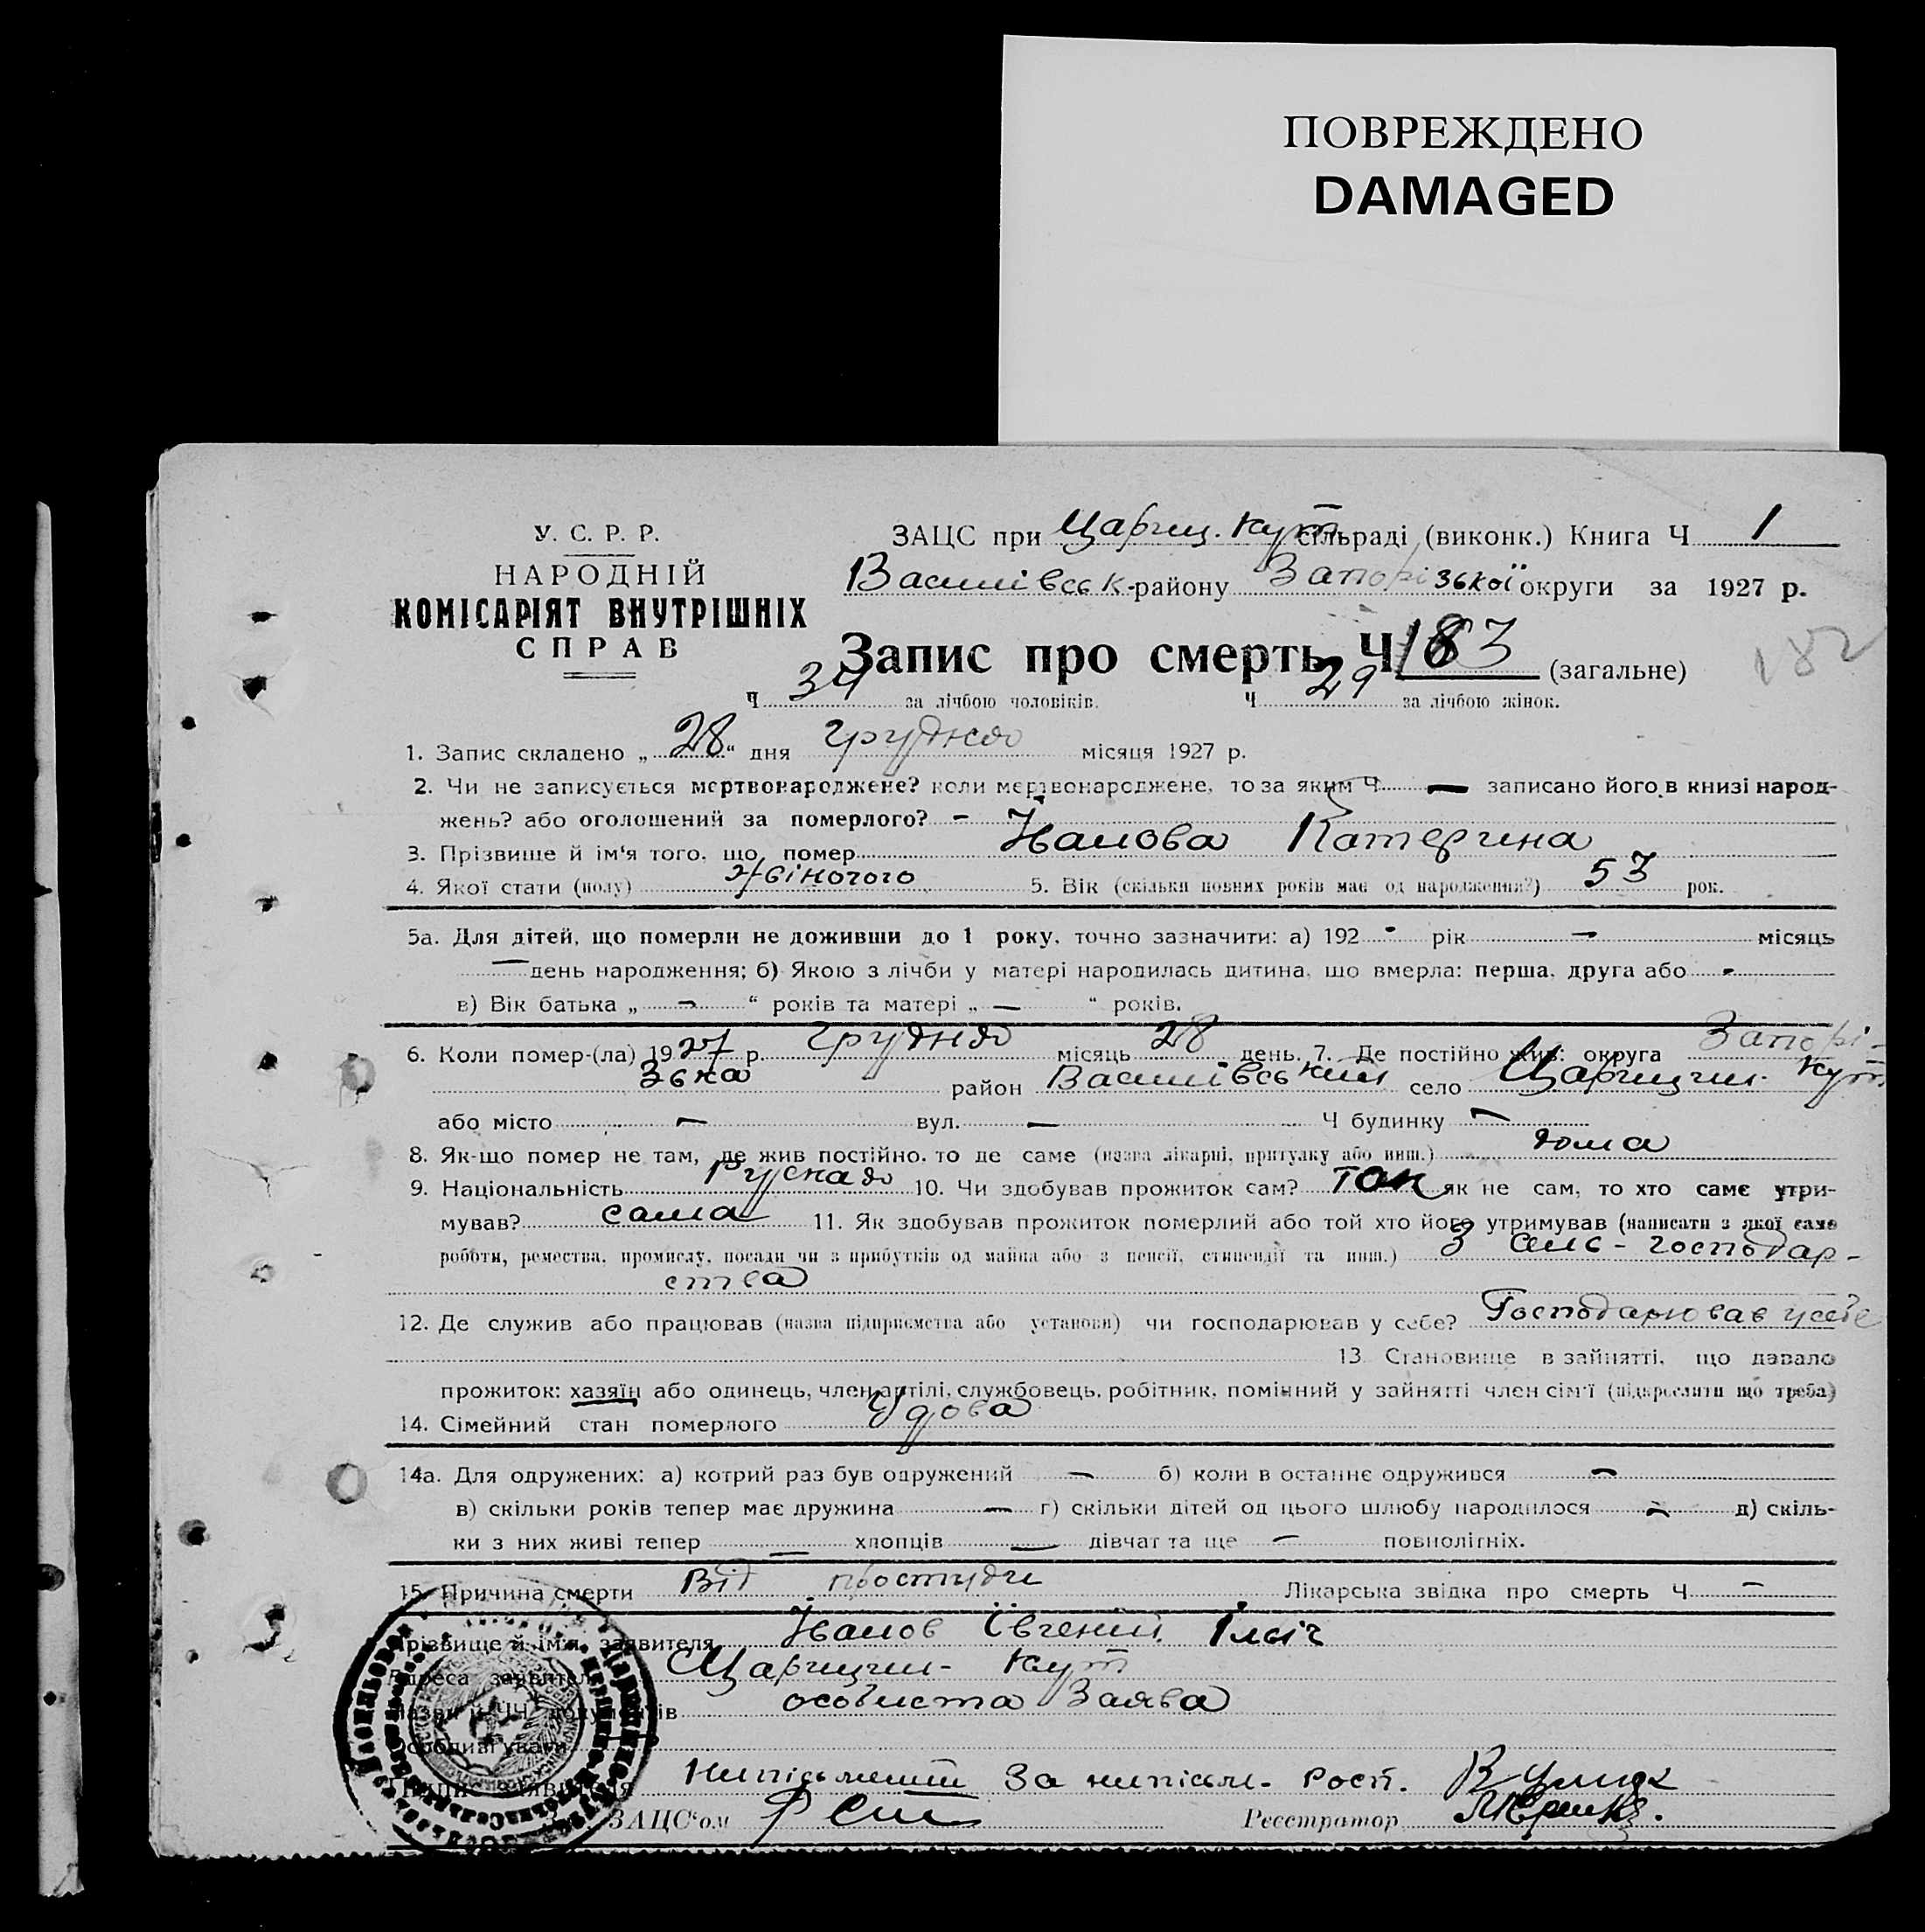 ПОВРЕЖДЕНО
DAMAGED
У. С. Р. Р.
НАРОДНІЙ
КОМІСАРІЯТ ВНУТРІШНІХ
СПРАВ
ЗАЦС при Цариц. Кут сільраді (виконк.) Книга Ч 1
Василівськ. району Запорізької округи за 1927 р.
Запис про смерть Ч 183 (загальне)
182
Ч 34 за лічбою чоловіків. Ч 29 за лічбою жінок.
1. Запис складено „ 28 “ дня грудня місяця 1927 р.
2. Чи не записується мертвонароджене? коли мертвонароджене, то за яким Ч — записано його в книзі народ-
жень? або оголошений за померлого? -
3. Прізвище й ім'я того, що помер Іванова Катерина
4. Якої статі (полу) жіночого 5. Вік (скільки повних років має од народження?) 53 рок.
5а. Для дітей, що померли не доживши до 1 року, точно зазначити: а) 192 - рік — місяць
— день народження; б) Якою з лічби у матері народилась дитина, що вмерла: перша, друга або -
в) Вік батька „ — “ років та матері „ — “ років.
6. Коли помер-(ла) 1927 р. грудня місяць 28 день. 7. Де постійно жив: округа Запорі-
зька район Василівський село Царицин- Кут
або місто — вул. — Ч будинку —
8. Як-що помер не там, де жив постійно, то де саме (назва лікарні, притулку або инш.) дома
9. Національність Руская 10. Чи здобував прожиток сам? так як не сам, то хто саме утри-
мував? сама 11. Як здобував прожиток померлий або той хто його утримував (написати з якої саме
роботи, ремества, промислу, посади чи з прибутків од майна або з пенсії, стипендії та инш.) З сіль-господар-
ства
12. Де служив або працював (назва підприємства або установи) чи господарював у себе? Господарював у себе
13. Становище в зайнятті, що давало
прожиток: хазяїн або одинець, член артілі, службовець, робітник, помічний у зайнятті член сім'ї (підкреслити що треба)
14. Сімейний стан померлого Удова
14а. Для одружених: а) котрий раз був одружений — б) коли в останнє одружився —
в) скільки років тепер має дружина — г) скільки дітей од цього шлюбу народилося — д) скіль-
ки з них живі тепер — хлопців — дівчат та ще — повнолітніх.
15. Причина смерти Від простуди Лікарська звідка про смерть Ч —
Прізвище й ім'я заявителя Іванов Євгеній Ільіч
Адреса заявителя Царицин- Кут
Назви й ЧЧ документів особиста Заява
Особливі уваги
Підпис заявителя Нипісьмений За нипісьм. Росп.
ЗАЦС'ом Реєстратор